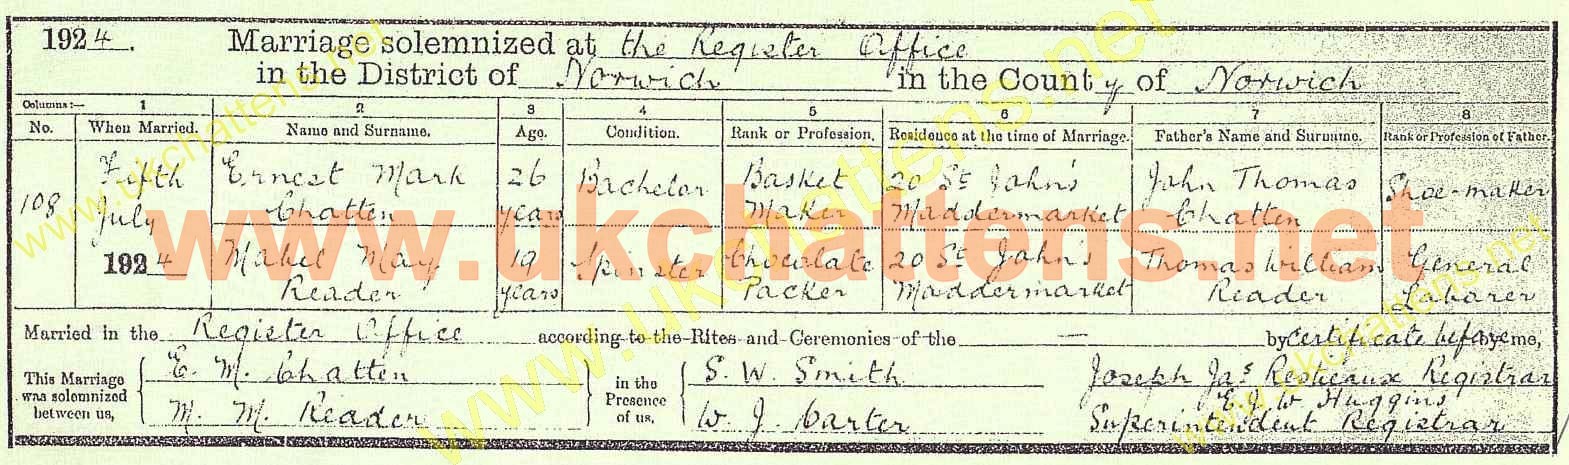 1924. Marriage solemnized at the Register Office
in the District of Norwich in the County of Norwich
Columns:— 1 2 3 4 5 6 7 8
No. When Married. Name and Surname. Age. Condition. Rank or Profession. Residence at the time of Marriage. Father's Name and Surname. Rank or Profession of Father.
108 Fifth July 1924
Ernest Mark Chatten
26 years
Bachelor
Basket Maker
20 St John's Maddermarket
John Thomas Chatten
Shoe-maker
Mabel May Reader
19 years
Spinster
Chocolate Packer
20 St John's Maddermarket
Thomas William Reader
General Labarer
Married in the Register Office according to the Rites and Ceremonies of the — by Certificate before by me,
This Marriage was solemnized between us,
E. M. Chatten
M. M. Reader
in the Presence of us,
S. W. Smith
W J Carter
Joseph Jas Restieaux Registrar
E. J. W Huggins
Superintendent Registrar
www.ukchattens.net
www.ukchattens.net
www.ukchattens.net
www.ukchattens.net
www.ukchattens.net